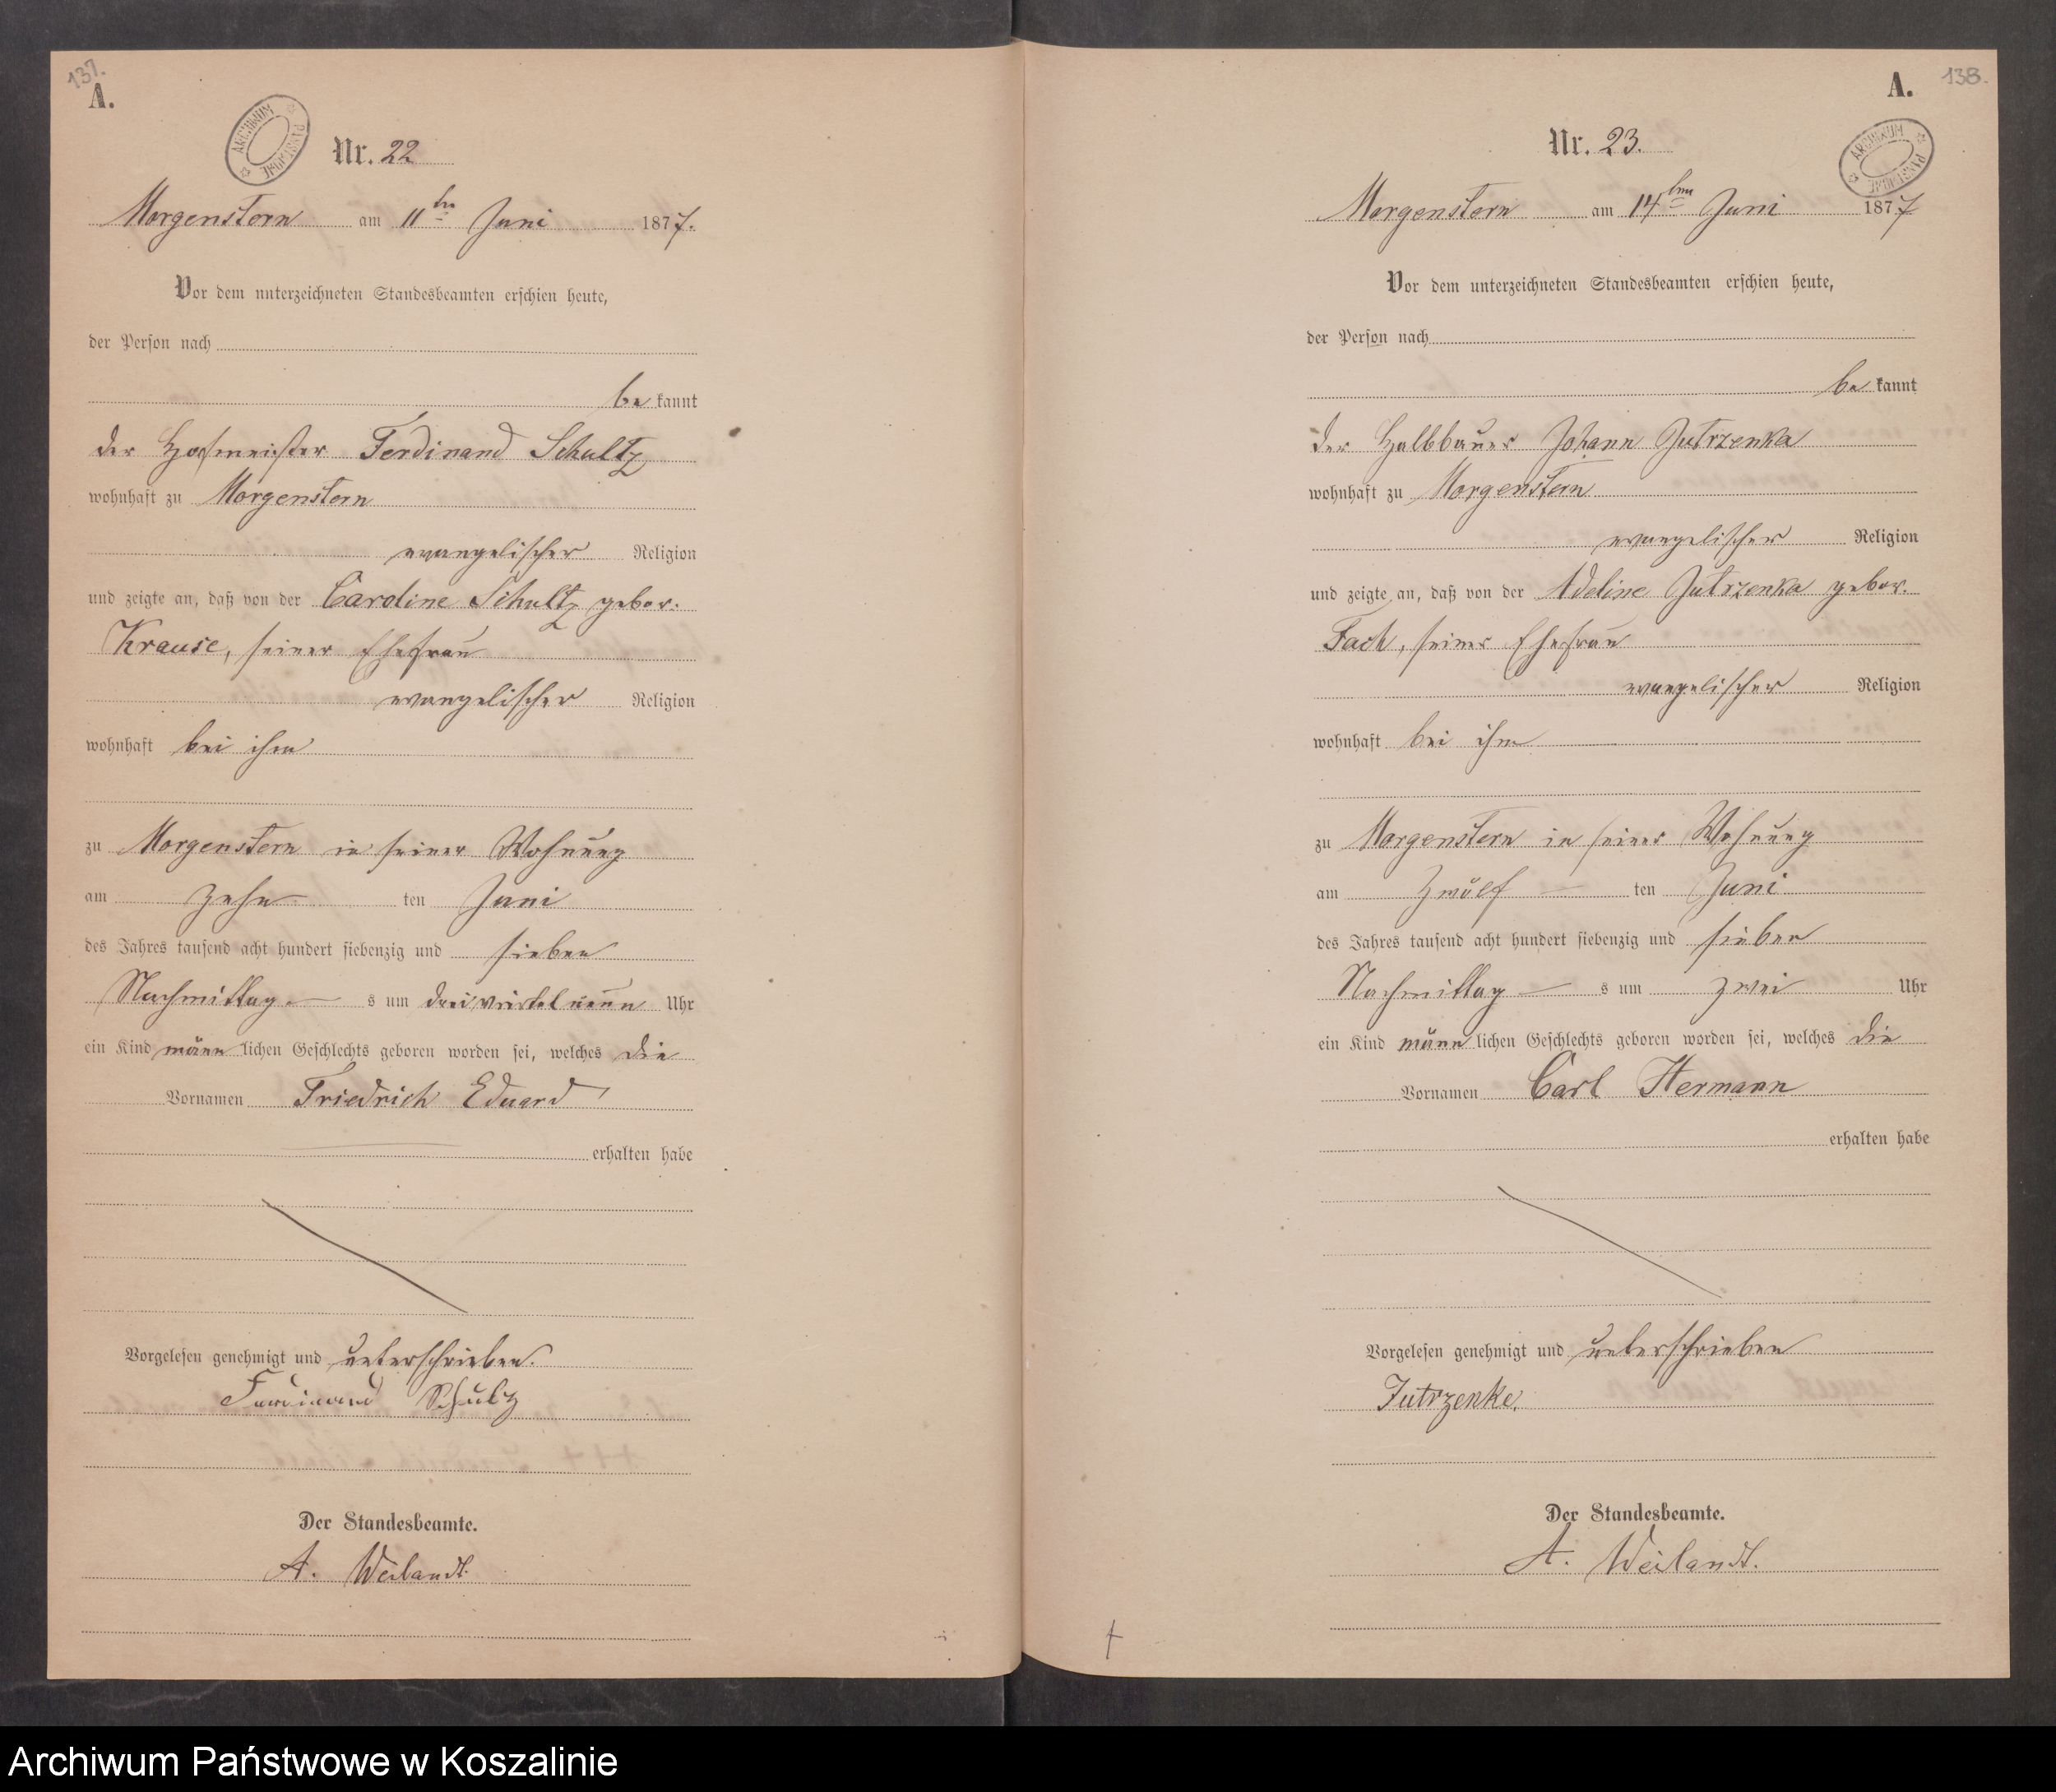 137.
A.
ARCHIWUM PAŃSTWOWE
Nr. 22
Morgenstern am 11ten Juni 1877.
Vor dem unterzeichneten Standesbeamten erschien heute,
der Person nach
be kannt
der Hofmeister Ferdinand Schultz
wohnhaft zu Morgenstern
evangelischer Religion
und zeigte an, daß von der Caroline Schultz gebor.
Krause, seiner Ehefrau
evangelischer Religion
wohnhaft bei ihm
zu Morgenstern in seiner Wohnung
am zehn ten Juni
des Jahres tausend acht hundert siebenzig und sieben
Nachmittag s um drei viertel neun Uhr
ein Kind männ lichen Geschlechts geboren worden sei, welches die
Vornamen Friedrich Eduard
erhalten habe
Vorgelesen genehmigt und unterschrieben.
Ferdinand Schulz
Der Standesbeamte.
A. Weilandt.
A. 138.
ARCHIWUM PAŃSTWOWE
Nr. 23.
Morgenstern am 14ten Juni 1877
Vor dem unterzeichneten Standesbeamten erschien heute,
der Person nach
be kannt
der Halbbauer Johann Jutrzenka
wohnhaft zu Morgenstern
evangelischer Religion
und zeigte an, daß von der Adeline Jutrzenka gebor.
Fach, seiner Ehefrau
evangelischer Religion
wohnhaft bei ihm
zu Morgenstern in seiner Wohnung
am Zwölf ten Juni
des Jahres tausend acht hundert siebenzig und sieben
Nachmittag s um zwei Uhr
ein Kind männ lichen Geschlechts geboren worden sei, welches die
Vornamen Carl Hermann
erhalten habe
Vorgelesen genehmigt und unterschrieben
Jutrzenke.
Der Standesbeamte.
A. Weilandt.
Archiwum Państwowe w Koszalinie